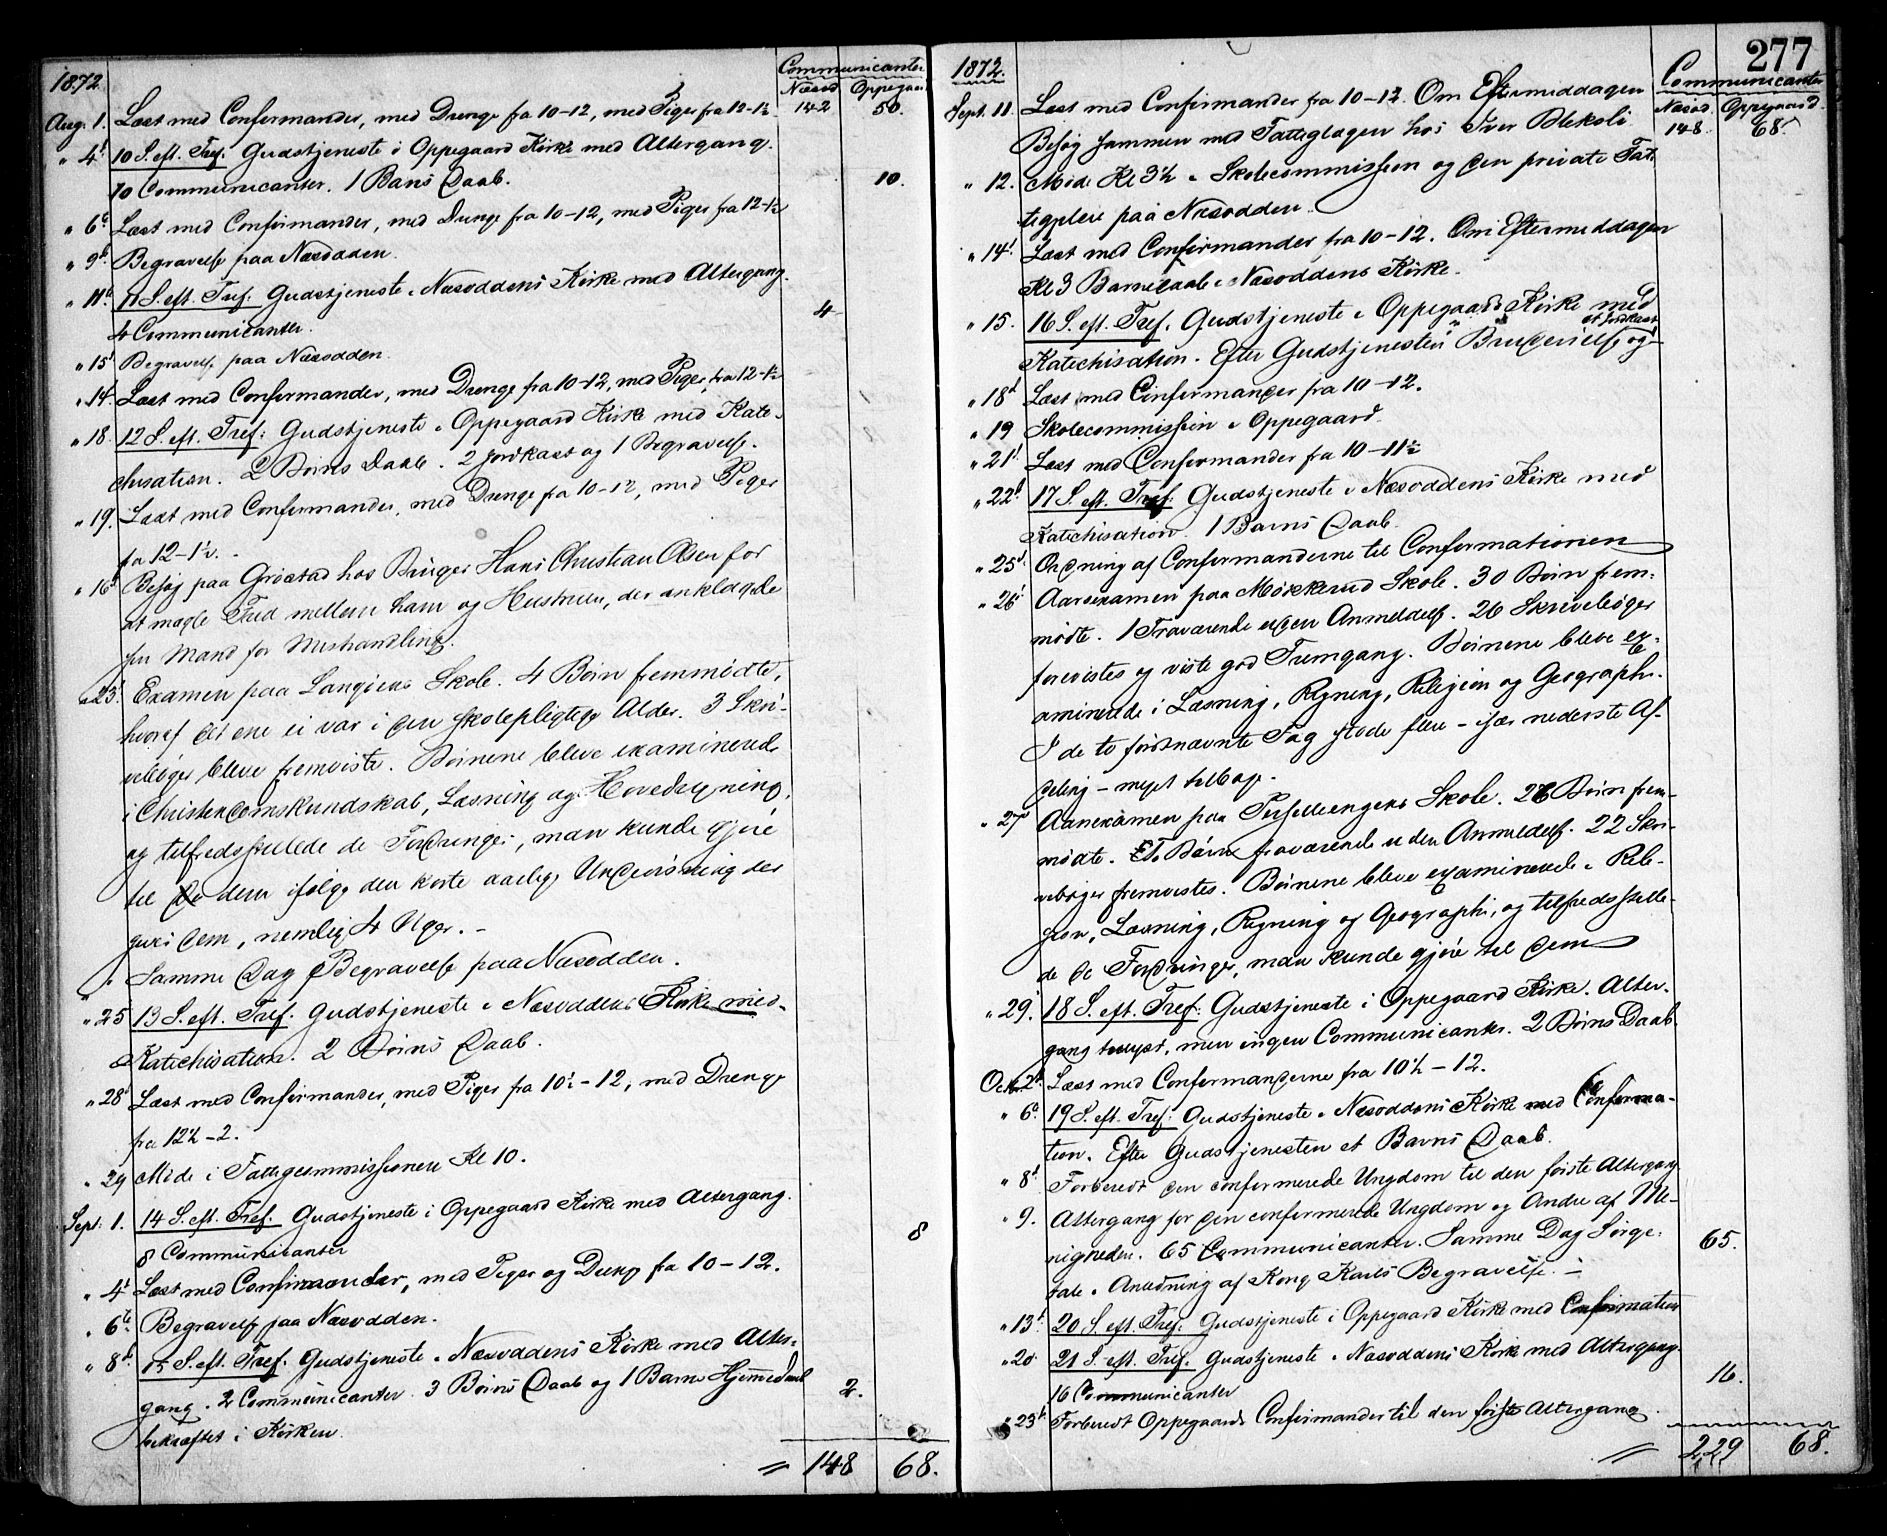 1872. Communicanter
Næsod. Oppegaard.
Aug. 1. Læst med Confirmander, med Drenge fra 10-12, med Piger fra 12-1½ 142 50.
" 4d 10 S. eft. Tref. Gudstjeneste i Oppegaard Kirke med Altergang.
10 Communicanter. 1 Barns Daab. 10.
" 6te Læst med Confirmander, med Drenge fra 10-12, med Piger fra 12-1½
" 9d. Begravelse paa Næsodden.
" 11te 11 S. eft. Tref: Gudstjeneste i Næsoddens Kirke med Altergang.
4 Communicanter. 4
" 15d Begravelse paa Næsodden.
" 14. Læst med Confirmander, med Drenge fra 10-12, med Piger fra 12-1½
" 18. 12 S. eft. Tref: Gudstjeneste i Oppegaard Kirke med Kate-
chisation. 2 Børns Daab. 2 Jordkast og 1 Begravelse.
" 19. Læst med Confirmander, med Drenge fra 10-12, med Piger
fra 12-1½.
" 16d Besøg paa Grøstad hos Bruger Hans Christian Olsen for
at mægle Fred mellem ham og Hustruen, der anklagede
sin Mand for Mishandling.
" 23d Examen paa Langøens Skole. 4 Børn fremmødte,
hvoraf det ene ei var i den skolepligtige Alder. 3 Skri-
vebøger bleve fremviste. Børnene bleve examinerede
i Christendomskundskab, Læsning og Hovedregning,
og tilfredsstillede de Fordringer, man kunde gjøre
til De dem ifølge den korte aarlige Underviisning der
gives dem, nemlig 4 Uger. -
" " Samme Dag Begravelse paa Næsodden.
" 25 13 S. eft. Tref. Gudstjeneste i Næsoddens Kirke med
Katechisation. 2 Børns Daab.
" 28d Læst med Confirmander, med Piger fra 10½-12, med Drenge
fra 12½-2.
" 29 Møde i Fattigcommissionen Kl 10.
Sept. 1. 14 S. eft. Tref. Gudstjeneste i Oppegaard Kirke med Altergang.
8 Communicanter 8
" 4d Læst med Confirmander, med Piger og Drenge fra 10-12.
" 6te Begravelse paa Næsodden.
" 8d. 15 S. eft. Tref. Gudstjeneste i Næsoddens Kirke med Alter-
gang. 2 Communicanter. 3 Børns Daab og 1 Barns Hjemmedaab 2.
bekræftet i Kirken.
= 148 68.
277
1872. Communicanter
Næsod. Oppegaard.
Sept. 11. Læst med Confirmander fra 10-12. Om Eftermiddagen 148. 68.
Besøg sammen med Fattiglægen hos Iver Bleksli
" 12. Møde Kl 3½ i Skolecommission og den private Fat-
tigpleie paa Næsodden.
" 14d Læst med Confirmander fra 10-12. Om Eftermiddagen
Kl 3 Barnedaab i Næsoddens Kirke.
" 15. 16 S. eft. Tref. Gudstjeneste i Oppegaard Kirke med
Katechisation. Efter Gudstjenesten Brudevielse og et Jordkast
" 18d Læst med Confirmander fra 10-12.
" 19 Skolecommission i Oppegaard.
" 21d Læst med Confirmander fra 10-11½
" 22d 17 S. eft. Tref. Gudstjeneste i Næsoddens Kirke med
Katechisation. 1 Barns Daab.
" 25d. Ordning af Confirmanderne til Confirmationen
" 26d Aarsexamen paa Mokkerud Skole. 30 Børn frem-
mødte. 1 Fraværende uden Anmeldelse. 26 Skrivebøger
forevistes og viste god Fremgang. Børnene bleve ex-
aminerede i Læsning, Regning, Religion og Geographi.
I de to førstnævnte Fag stode flere - især nederste Af-
deling - meget tilbage.
" 27 Aarsexamen paa Skole. 26 Børn frem-
mødte. To Børn fraværende uden Anmeldelse. 22 Skri-
vebøger fremvistes. Børnene bleve examinerede i Reli-
gion, Læsning, Regning og Geographi, og tilfredsstille-
de de Fordringer, man kunde gjøre til dem
" 29. 18 S. eft. Tref: Gudstjeneste i Oppegaard Kirke. Alter-
gang tillyst, men ingen Communicanter. 2 Børns Daab.
Octr. 2d. Læst med Confirmanderne fra 10½-12.
" 6te 19 S. eft. Tref: Gudstjeneste i Næsoddens Kirke med Confirma-
tion. Efter Gudstjenesten et Barns Daab.
" 8d Forberedt den confirmerede Ungdom til den første Altergang
" 9. Altergang for den confirmerede Ungdom og Andre af Me-
nigheden. 65 Communicanter. Samme Dag Sørge- 65.
tale i Anledning af Kong Karls Begravelse. -
" 13d. 20 S. eft. Tref: Gudstjeneste i Oppegaard Kirke med Confirmation
" 20. 21 S. eft. Tref. Gudstjeneste i Næsoddens Kirke med Altergang.
16 Communicanter 16.
" 23d Forberedt Oppegaards Confirmander til den første Altergang.
= 229 68.